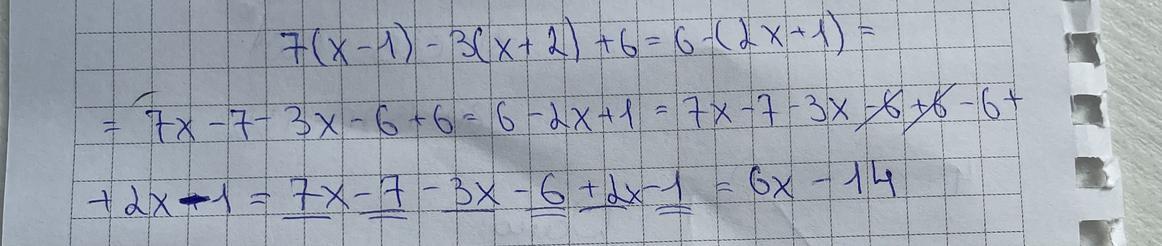 7(x-1)-3(x+2)+6=6-(2x+1)=
=7x-7-3x-6+6=6-2x+1=7x-7-3x-6+6-6+
+2x-1=7x-7-3x-6+2x-1=6x-14